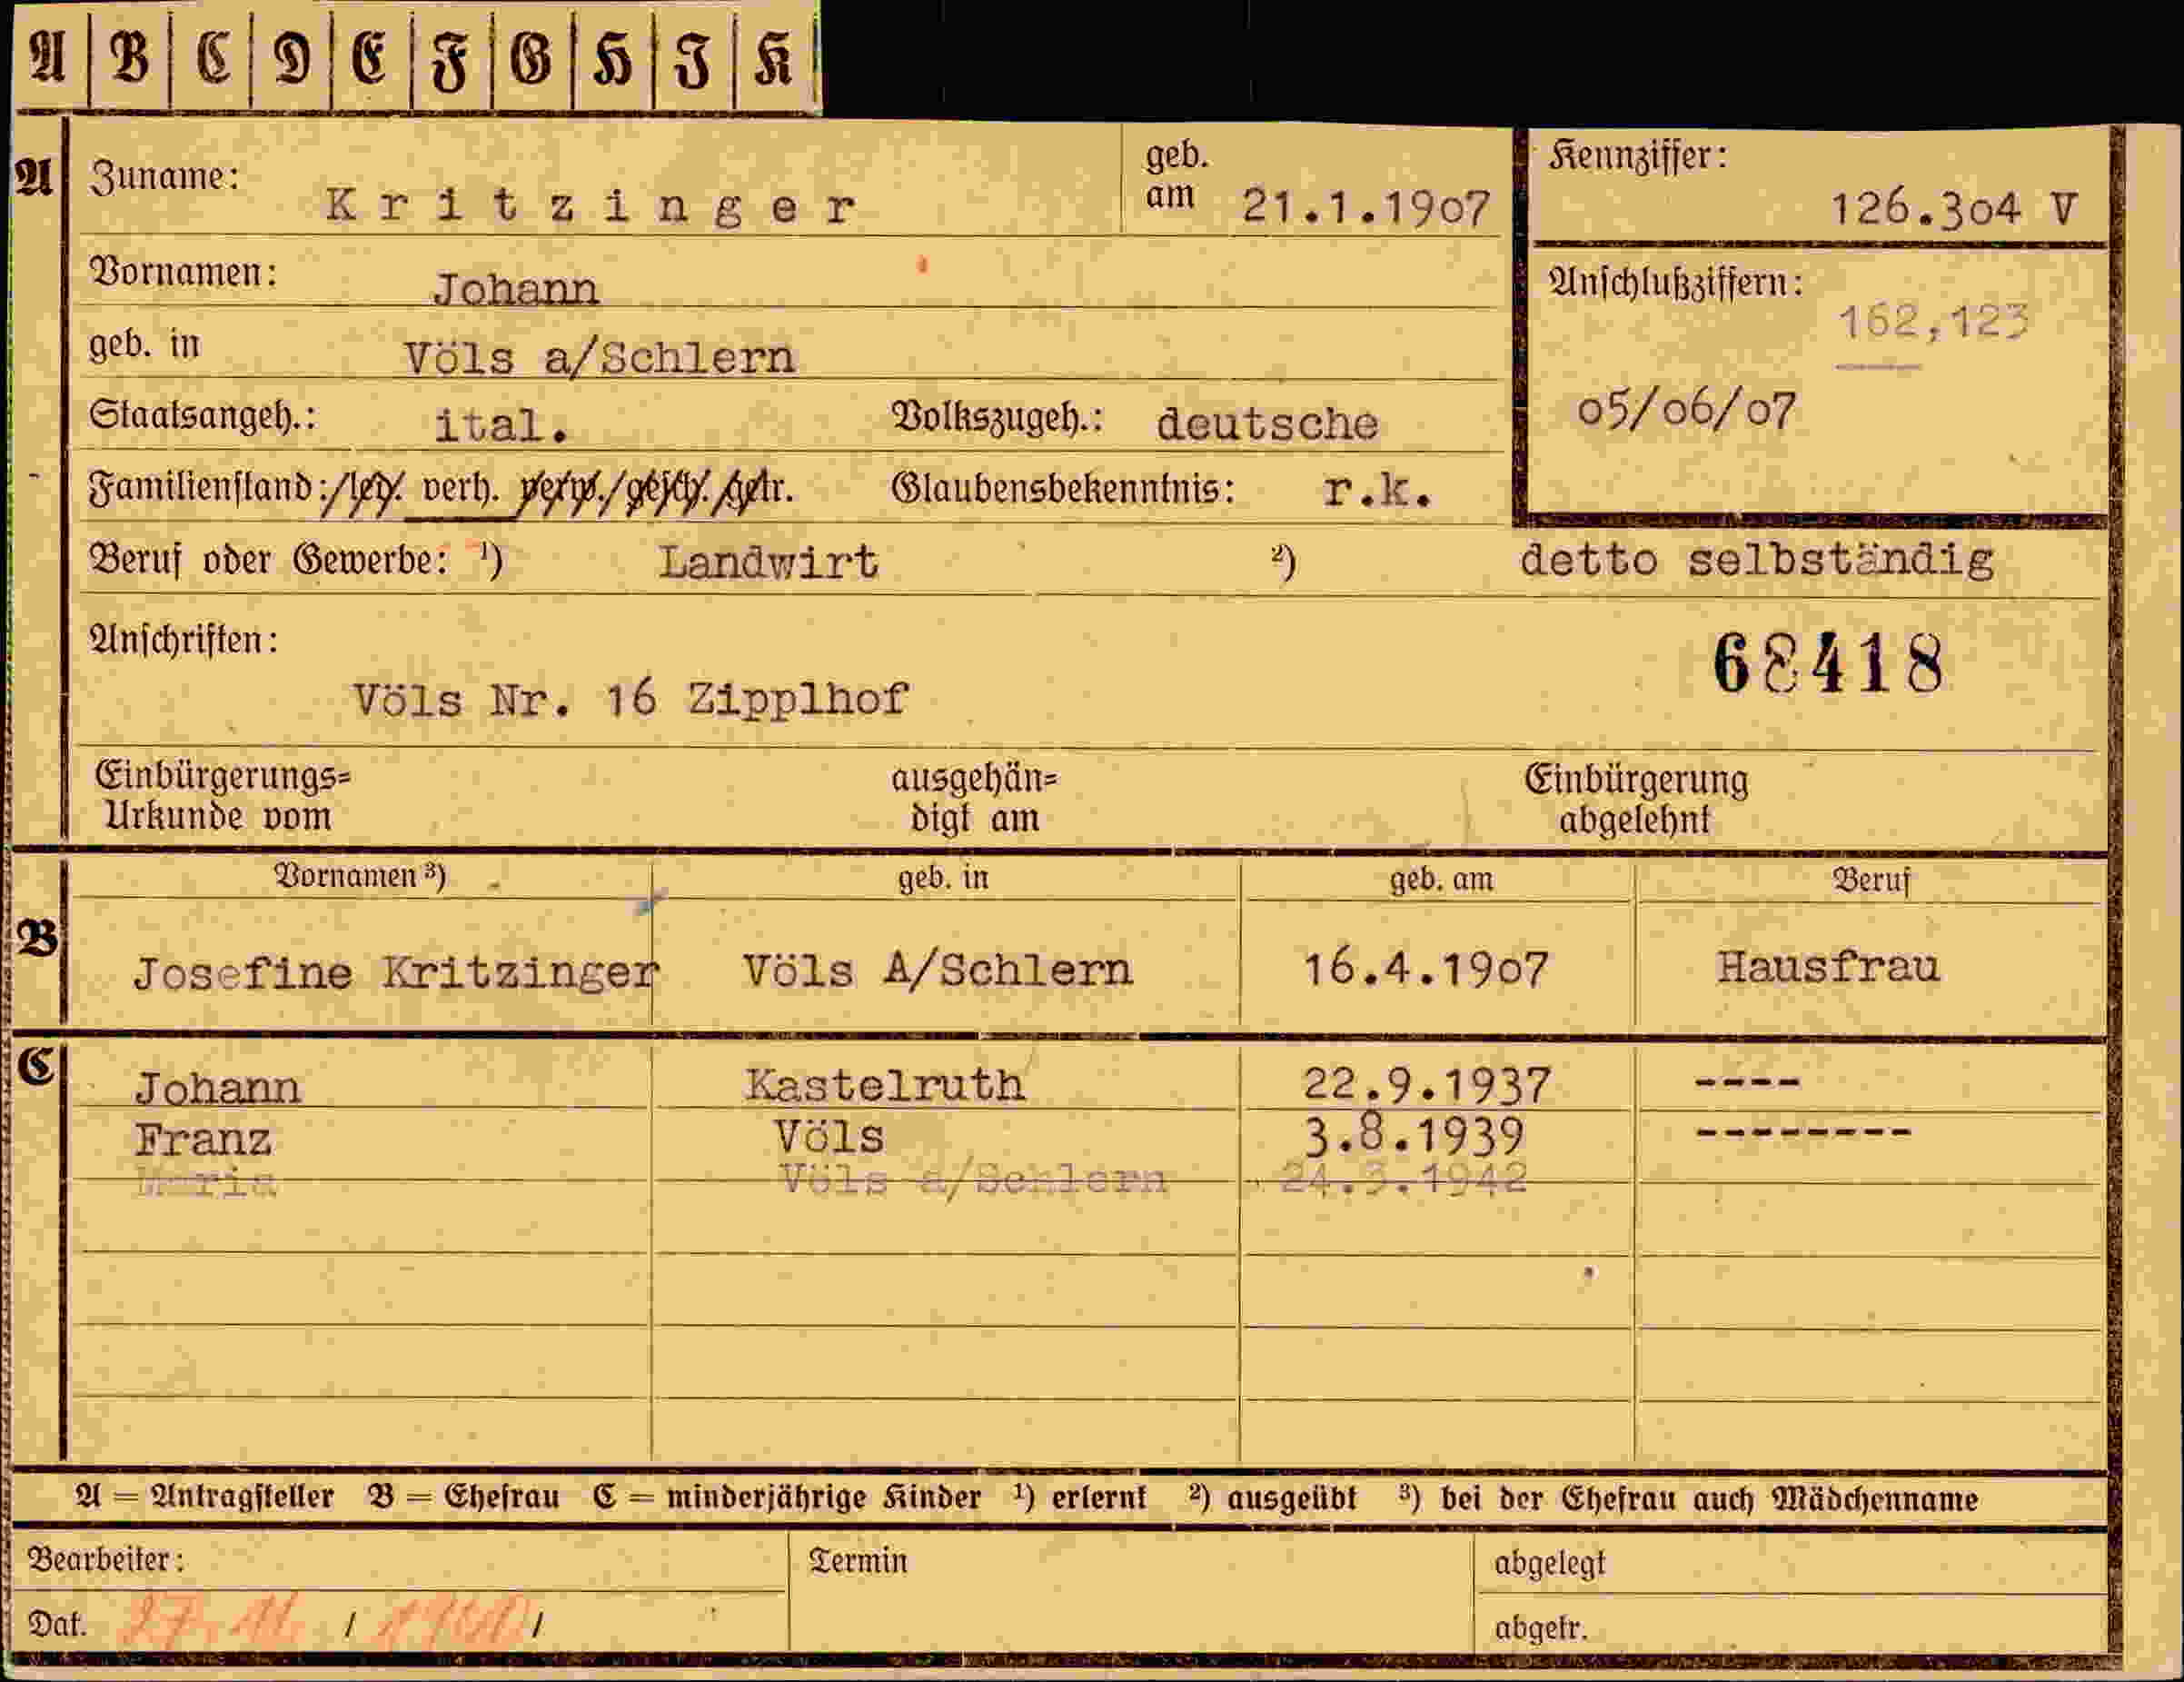 A B C D E F G H I K
A Zuname: Kritzinger geb. am 21.1.1907 Kennziffer: 126.304 V
Vornamen: Johann Anschlußziffern: 162,123
geb. in Völs a/Schlern
Staatsangeh.: ital. Volkszugeh.: deutsche 05/06/07
Familienstand: led. verh. verw. gesch. getr. Glaubensbekenntnis: r.k.
Beruf oder Gewerbe: ¹) Landwirt ²) detto selbständig
Anschriften: 68418
Völs Nr. 16 Zipplhof
Einbürgerungs= ausgehän= Einbürgerung
Urkunde vom digt am abgelehnt
Vornamen ³) geb. in geb. am Beruf
B Josefine Kritzinger Völs A/Schlern 16.4.1907 Hausfrau
C Johann Kastelruth 22.9.1937 ----
Franz Völs 3.8.1939 --------
Maria Völs a/Schlern 24.3.1942
A = Antragsteller B = Ehefrau C = minderjährige Kinder ¹) erlernt ²) ausgeübt ³) bei der Ehefrau auch Mädchenname
Bearbeiter: Termin abgelegt
Dat. / / abgetr.